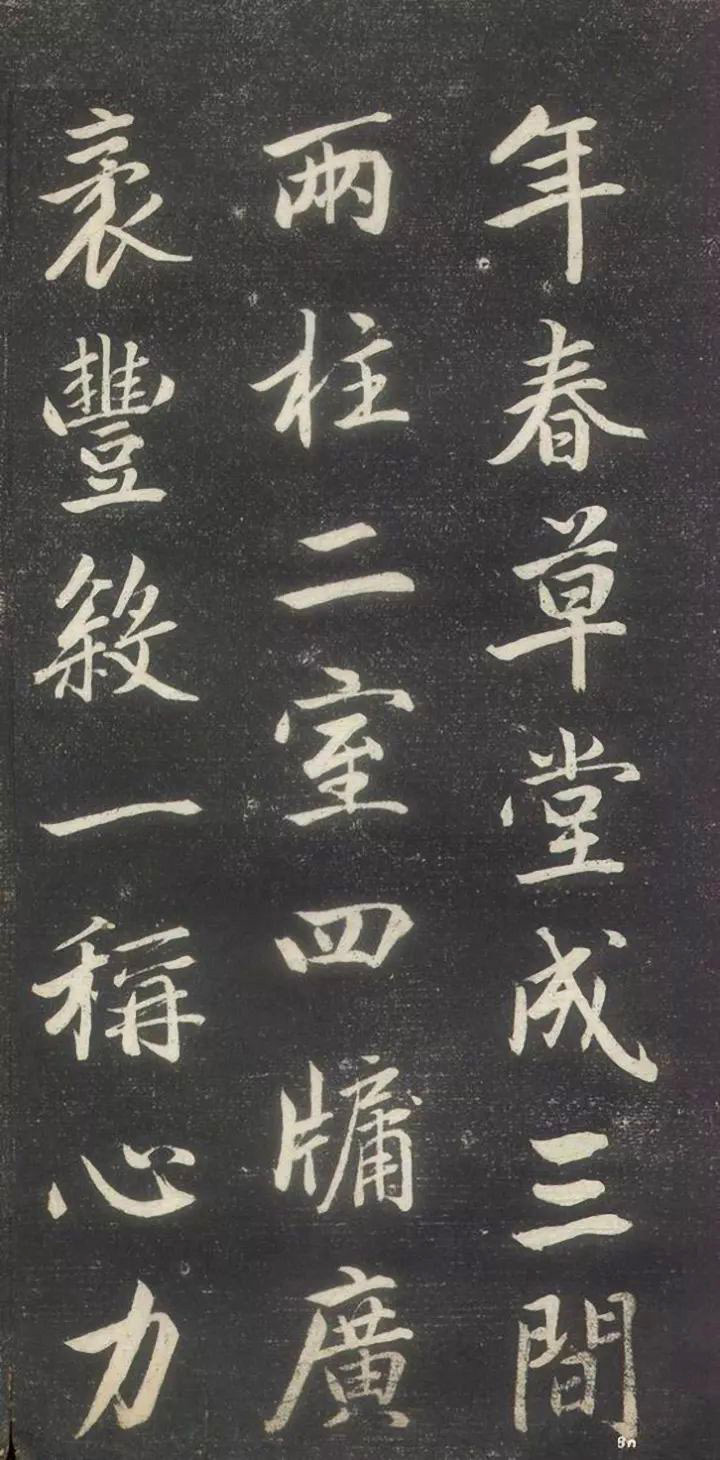 年春草堂成三間
兩柱二室四牗廣
袤豐殺一稱心力
8n